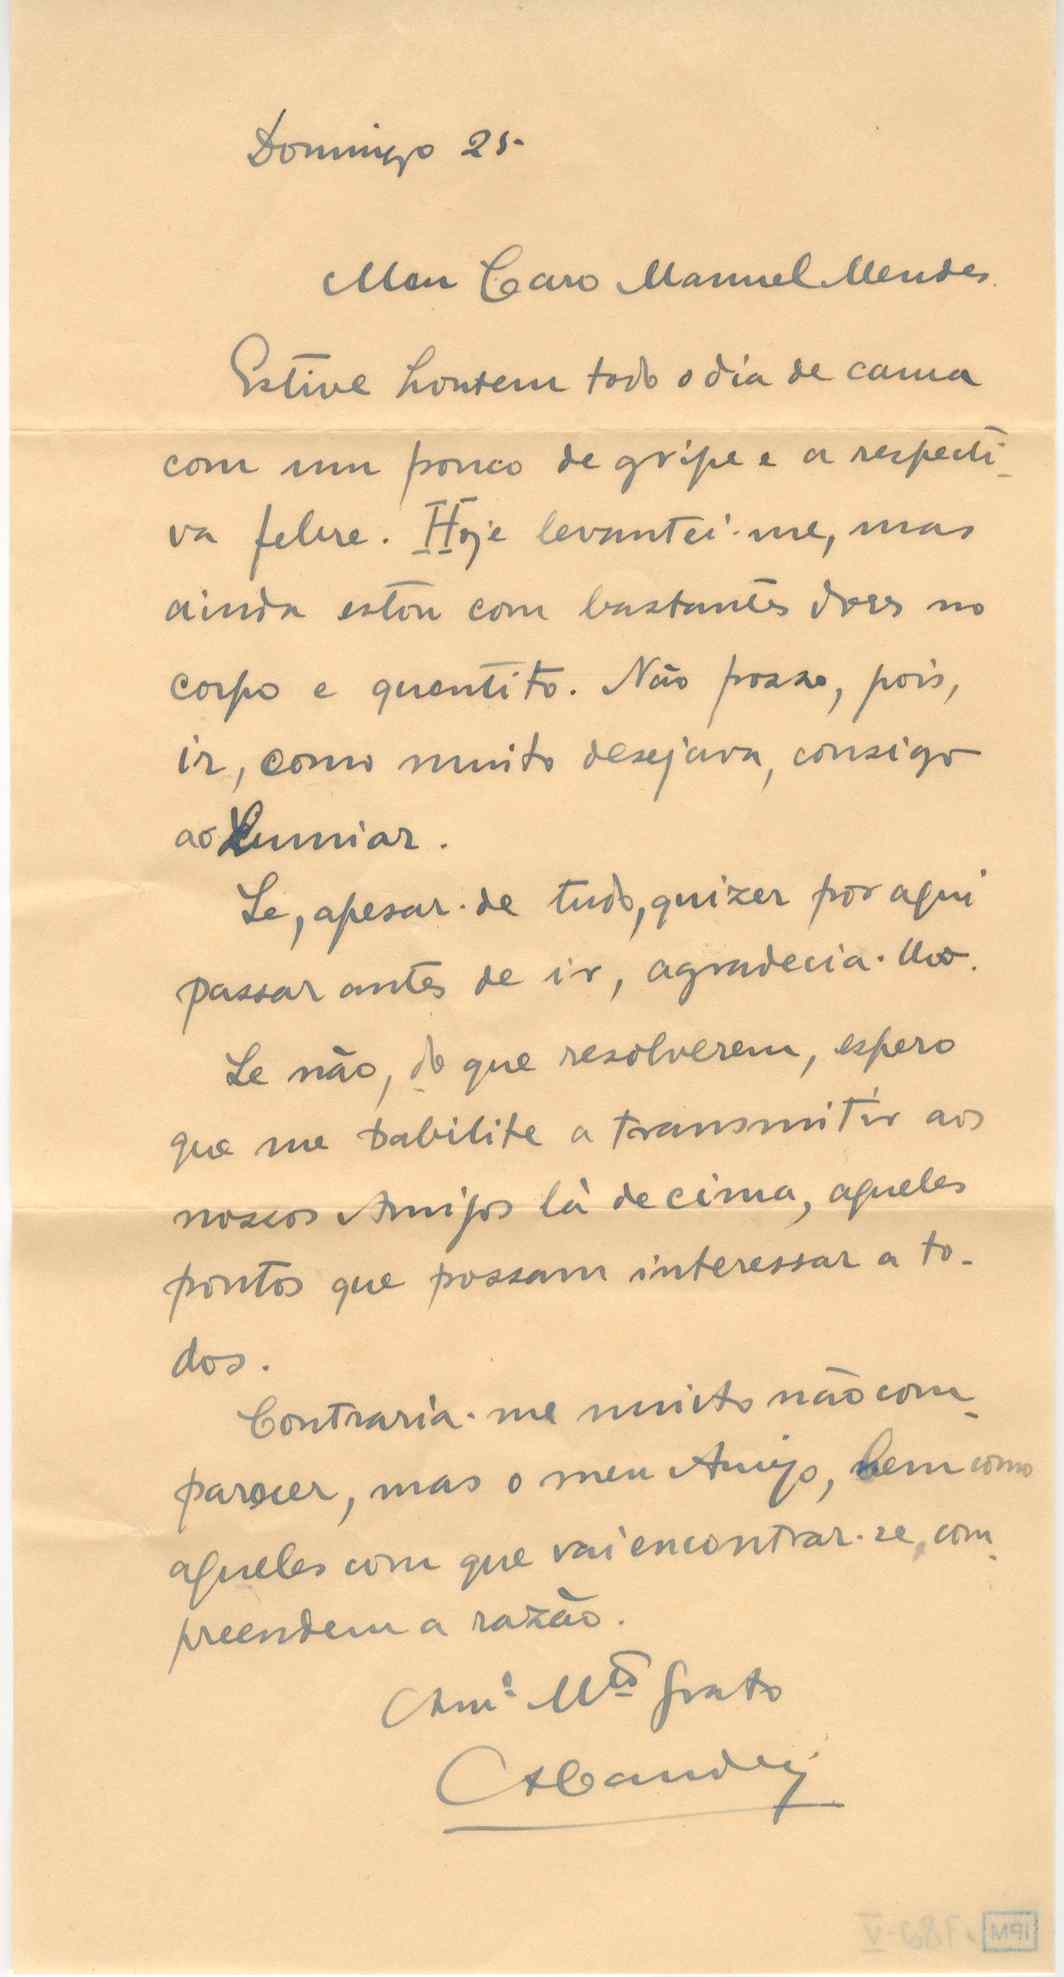 Domingo 25.
Meu Caro Manuel Mendes.
Estive hontem todo o dia de cama
com um pouco de gripe e a respecti-
va febre. Hoje levantei-me, mas
ainda estou com bastantes dores no
corpo e quentito. Não posso, pois,
ir, como muito desejava, consigo
ao Lumiar.
Se, apesar-de tudo, quizer por aqui
passar antes de ir, agradecia-lho.
Se não, do que resolverem, espero
que me habilite a transmitir aos
nossos Amigos lá de cima, aqueles
pontos que possam interessar a to-
dos.
Contraria-me muito não com-
parecer, mas o meu Amigo, bem como
aqueles com que vai encontrar-se, com-
preendem a razão.
Am.º M.to Grato
IPM